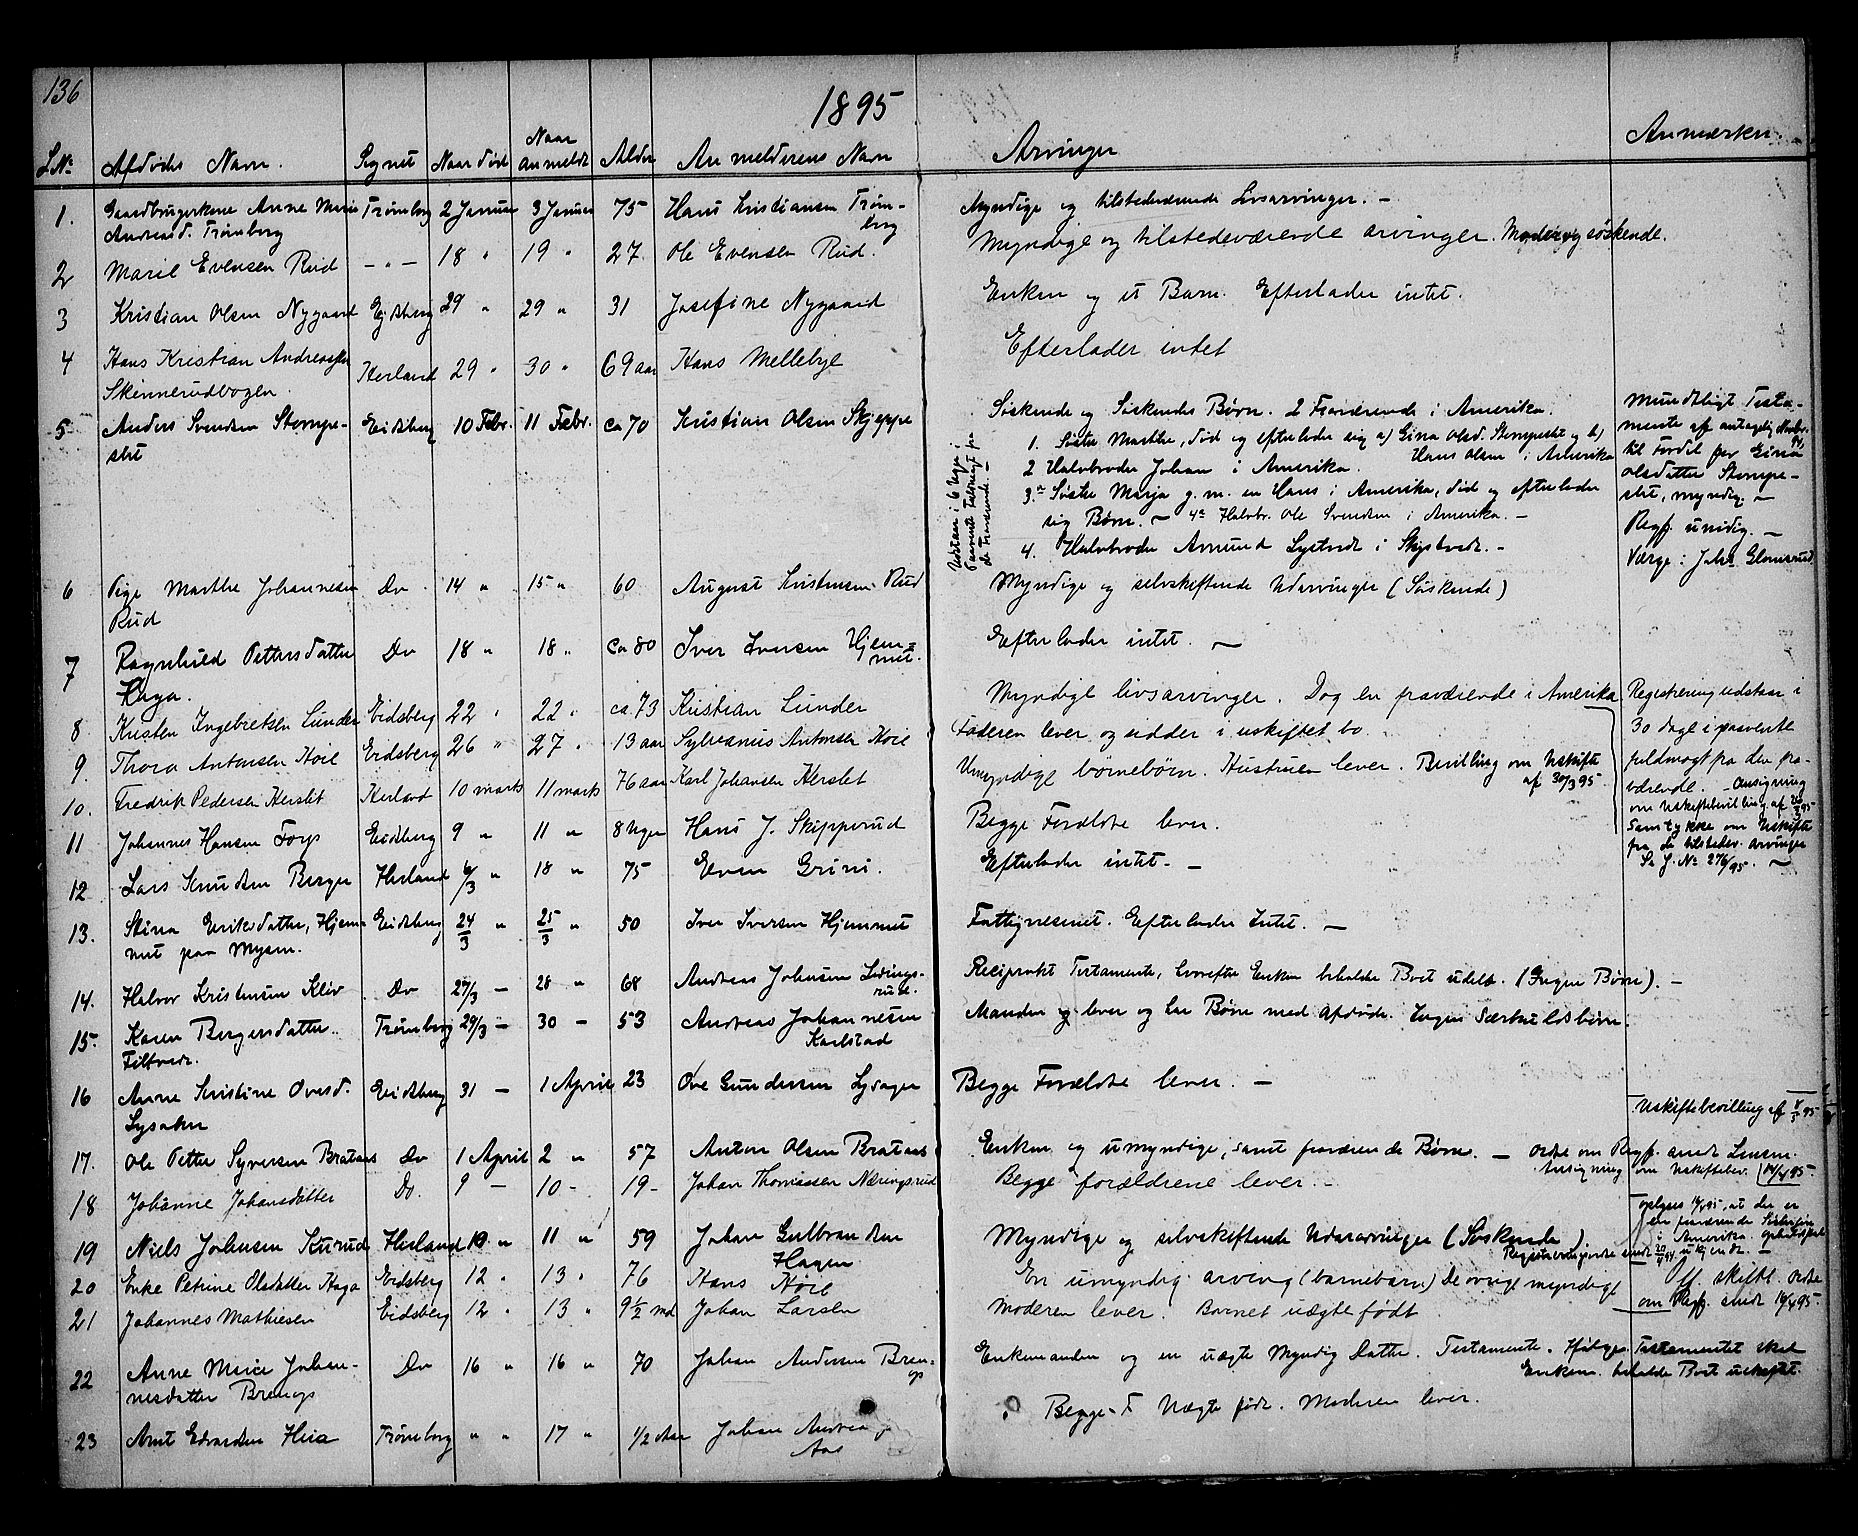 136
1895
L.No Afdødes Navn. Sognet Naar død Naar anmeldt Alder Anmelderens Navn Arvinger Anmærkn.
1. Gaardbrugerkone Anne Marie Trømborg 2 Januar 3 Januar 75 Hans Kristiansen Trøm- Myndige og tilstedeværende Livsarvinger. –
Andreasd. Trømborg borg
2 Marie Evensen Rud – " – 18 " 19 " 27. Ole Evensen Rud. Myndige og tilstedeværende arvinger. Moder og søskende.
3 Kristian Olsen Nygaard Eidsberg 29 " 29 " 31 Josefine Nygaard Enken og et Barn. Efterlader intet.
4 Hans Kristian Andreassen Herland 29 " 30 " 69 aar Hans Mellebye Efterlader intet
Skinnerudbogen.
5 Anders Svendsen Stompe- Eidsberg 10 Febr. 11 Febr. ca 70 Kristian Olsen Skjeppe Søskende og Søskendes Børn. 2 Fraværende i Amerika. Mundtligt Testa-
slet 1. Søster Marthe, død og efterlader sig a) Gina Olsd. Stompeslet og b) mente af antagelig Novbr. 94,
Hans Olsen i Amerika til Fordel for Gina
2 Halvbroder Johan i Amerika. Olsdatter Stompe-
3 Søster Marja g. m. en Hans i Amerika, død og efterlader slet, myndig. –
sig Børn. – 4 Halvbr. Ole Svendsen i Amerika. – Regf. unidig. –
4. Halvbroder Amund Lystvedt i Skiptvedt. – Værge: Johs Glomsrud
Udstaar i 6 Uger i
Paavente Fuldmagt fra
de Fraværende. –
6 Pige Marthe Johannesen Do 14 " 15 " 60 August Kristensen Rud Myndige og selvskiftende Udarvinger (Søskende)
Rud
7 Ragnhild Pettersdatter Do 18 " 18 " ca 80 Iver Iversen Hjem- Efterlader intet. –
Haga. met.
8 Kristen Ingebretsen Lunder Eidsberg 22 " 22 " ca. 73 Kristian Lunder Myndige livsarvinger. Dog en fraværende i Amerika Registrering udstaar i
30 dage i paavente
fuldmagt fra den fra-
værende. – Ansøgning
om Uskiftebevilling af 20/3 95
Samtykke om Uskifte
fra de tilstedev. arvinger
Se J. No 276/95. –
9. Thora Antonsen Hoie Eidsberg 26 " 27 " 13 aar Sylvanus Antonsen Hoie Faderen lever og sidder i uskiftet bo
10. Fredrik Pedersen Herslet Herland 10 marts 11 marts 76 aar Karl Johansen Herslet Umyndige børnebørn. Hustruen lever. Bevilling om Uskifte
af 30/3 95.
11 Johannes Hansen Fors Eidsberg 9 " 11 " 8 Uger Hans J. Skipperud Begge Forældre lever.
12 Lars Knudsen Berger Herland 6/3 " 18 " 75 Even Grini. Efterlader intet. –
13. Stina Eriksdatter, Hjem- Eidsberg 24/3 " 25/3 " 50 Iver Iversen Hjemmet Fattiglemmet. Efterlader Intet. –
met paa Mysen.
14. Halvor Kristensen Kliv Do 27/3 – 28 " 68 Andreas Johnsen Reciprokt Testamente, hvorefter Enken beholder Boet udelt. (Ingen Børn). –
15. Karen Bergersdatter Trømborg 29/3 – 30 – 53 Andreas Johannesen Manden lever og har Børn med Afdøde. Ingen Særkuldsbørn.
Filtvedt. Karlstad
16 Anne Kristine Ovesd. Eidsberg 31 – 1 April 23 Ove Gundersen Lysaker Begge Forældre lever. –
Lysaker
Uskiftebevilling af 95
17. Ole Petter Syversen Brataas Do 1 April 2 " 57 Anton Olsen Brataas Enken og umyndige, samt fraværende Børn. – Ordre om Regf. sendt Lensm.
Ansøgning om Uskiftebev. 14/4 95
18 Johanne Johansdatter Do. 9 – 10 – 19 – Johan Thomassen Næringsrud Begge forældrene lever. –
19 Niels Johnsen Kurud Herland 10 " 11 " 59 Johan Gulbrandsen Myndige og selvskiftende Udarvinger (Søskende).
Hagen
oplyses 95, at der er
en fraværende
i Amerika.
20 Enke Petrine Olsdatter Haga Eidsberg 12 " 13 " 76 Hans Hoie En umyndig arving (barnebarn) De øvrige myndige Off. skifte. Ordre
21 Johannes Mathiesen Eidsberg 12 " 13 " 9½ md Johan Larsen Moderen lever. Barnet uægte født. om Regf. sendt 19/4 95
22 Anne Marie Johan- Do 16 " 16 " 70 Johan Andersen Bren- Enkemanden og en uægte Myndig Datter. Testamente. Ifølge Testamentet skal
nesdatter Brenegs Enkem. beholde Boet uskiftet.
23 Arnt Edvardsen Heia Trømborg " " 17 " 1/2 Aar Johan Andrea Begge. F Uægte født. Moderen lever.
Aas